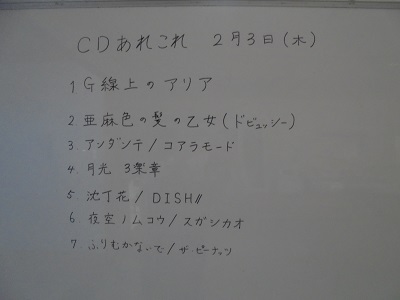 CDあれこれ 2月3日(木)
1. G線上のアリア
2. 亜麻色の髪の乙女(ドビュッシー)
3. アンダンテ/コアラモード
4. 月光 3楽章
5 沈丁花/DISH//
6. 夜空ノムコウ/スガシカオ
7. ふりむかないで/ザ・ピーナッツ